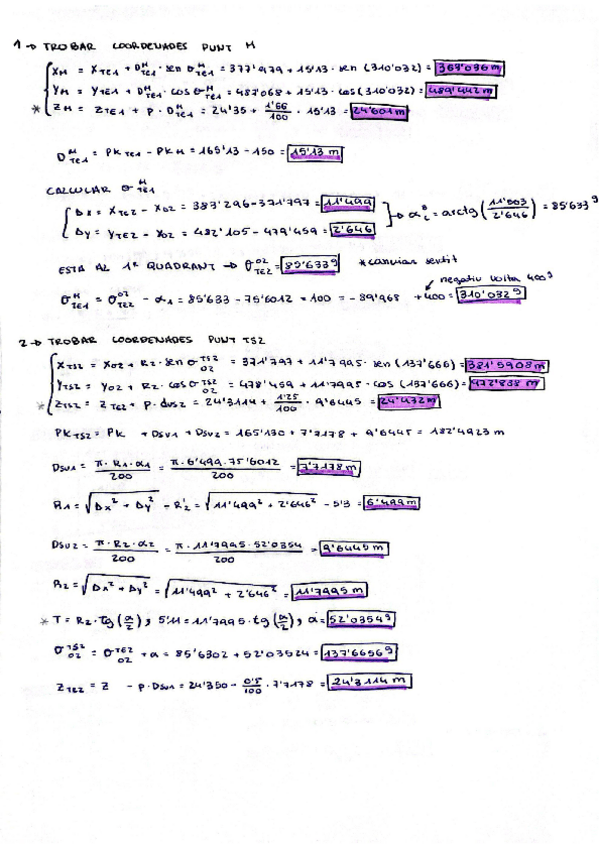 1 → TROBAR COORDENADES PUNT M
XM = XTE1 + D^M TE1 · sen σ^M TE1 = 377'979 + 15'13 · sen (310'032) = 369'096 m
YM = YTE1 + D^M TE1 · cos σ^M TE1 = 487'068 + 15'13 · cos (310'032) = 489'442 m
* ZM = ZTE1 + P · D^M TE1 = 24'35 + 1'66/100 · 15'13 = 24'601 m
D^M TE1 = PK TE1 - PK M = 165'13 - 150 = 15'13 m
CALCULAR σ^M TE1
Δx = XTE2 - X02 = 383'296 - 371'797 = 11'499
Δy = YTE2 - Y02 = 482'105 - 479'459 = 2'646
→ α = arctg (11'503/2'646) = 85'633g
ESTA AL 1r QUADRANT → σ^02 TE2 = 85'633g * canviar sentit
negatiu volta 400g
σ^M TE1 = σ^02 TE2 - α1 = 85'633 - 75'6012 - 100 = - 89'968 + 400 = 310'032g
2 → TROBAR COORDENADES PUNT TS2
XTS2 = X02 + R2 · sen σ^TS2 02 = 371'797 + 11'7995 · sen (137'666) = 381'5908 m
YTS2 = Y02 + R2 · cos σ^TS2 02 = 478'459 + 11'7995 · cos (137'666) = 472'838 m
* ZTS2 = ZTE2 + P · DSU2 = 24'3114 + 1'25/100 · 9'6445 = 24'432 m
PK TS2 = PK + DSU1 + DSU2 = 165'130 + 7'7178 + 9'6445 = 182'4923 m
DSU1 = π · R1 · α1/200 = π · 6'499 · 75'6012/200 = 7'7178 m
R1 = √Δx² + Δy² - R2' = √11'499² + 2'646² - 5'3 = 6'499 m
DSU2 = π · R2 · α2/200 = π · 11'7995 · 52'0354/200 = 9'6445 m
R2 = √Δx² + Δy² = √11'499² + 2'646² = 11'7995 m
* T = R2 · tg (α/2) ; 5'11 = 11'7995 · tg (α/2) ; α = 52'0354g
σ^TS2 02 = σ^TE2 02 + α = 85'6302 + 52'03524 = 137'6656g
ZTE2 = Z - P · DSU1 = 24'350 - 0'5/100 · 7'7178 = 24'3114 m